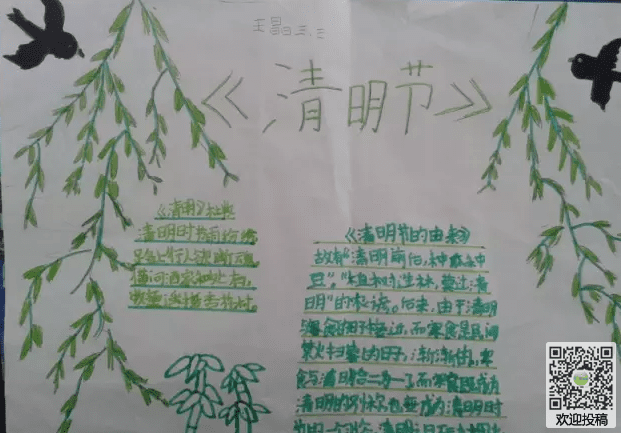 王晶 三、三
《清明节》
《清明》杜牧
清明时节雨纷纷
路上行人欲断魂
借问酒家何处有,
牧童遥指杏花村。
《清明节的由来》
故有“清明前后,种瓜种
豆”。“植树造林,莫过清
明”的农谚。后来,由于清明
与寒食的日子接近,而寒食是民间
禁火扫墓的日子,渐渐的,寒
食与清明合二为一了,而寒食既成为
清明的别称,也变成为清明时
欢迎投稿